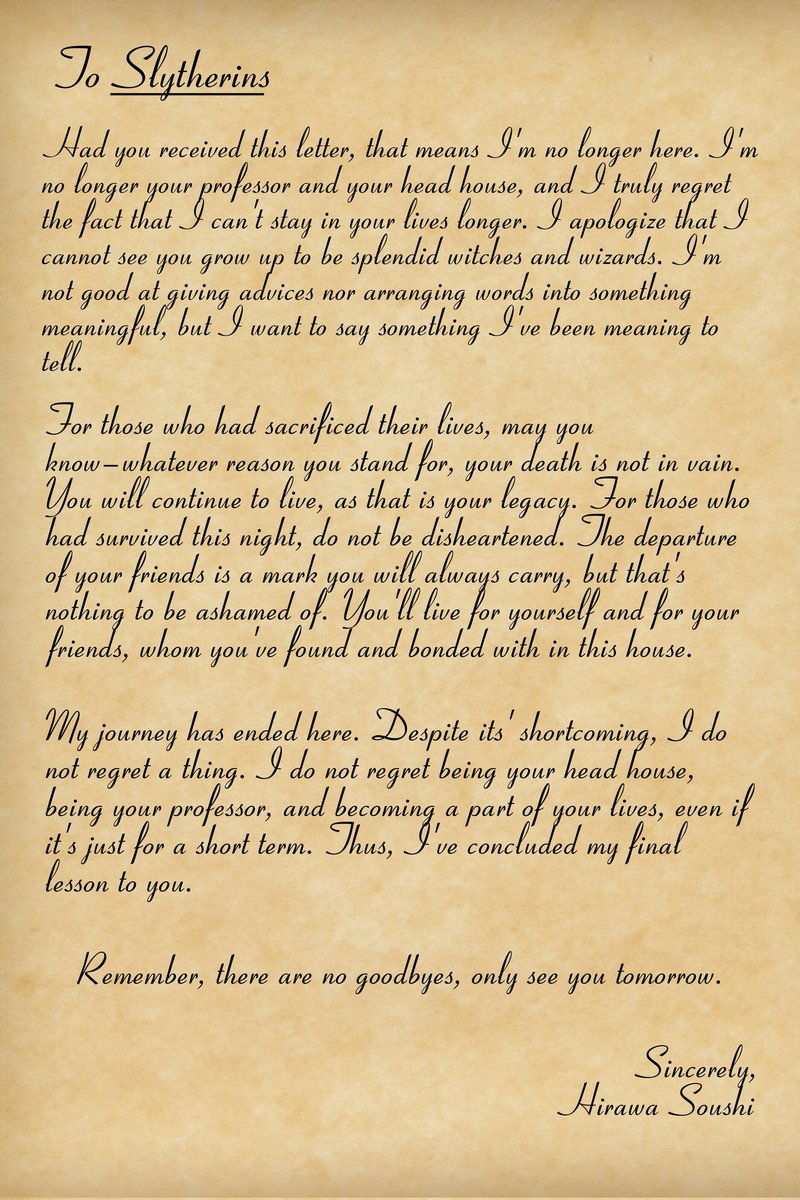 To Slytherins
Had you received this letter, that means I'm no longer here. I'm
no longer your professor and your head house, and I truly regret
the fact that I can't stay in your lives longer. I apologize that I
cannot see you grow up to be splendid witches and wizards. I'm
not good at giving advices nor arranging words into something
meaningful, but I want to say something I've been meaning to
tell.
For those who had sacrificed their lives, may you
know—whatever reason you stand for, your death is not in vain.
You will continue to live, as that is your legacy. For those who
had survived this night, do not be disheartened. The departure
of your friends is a mark you will always carry, but that's
nothing to be ashamed of. You'll live for yourself and for your
friends, whom you've found and bonded with in this house.
My journey has ended here. Despite its' shortcoming, I do
not regret a thing. I do not regret being your head house,
being your professor, and becoming a part of your lives, even if
it's just for a short term. Thus, I've concluded my final
lesson to you.
Remember, there are no goodbyes, only see you tomorrow.
Sincerely,
Hirawa Soushi